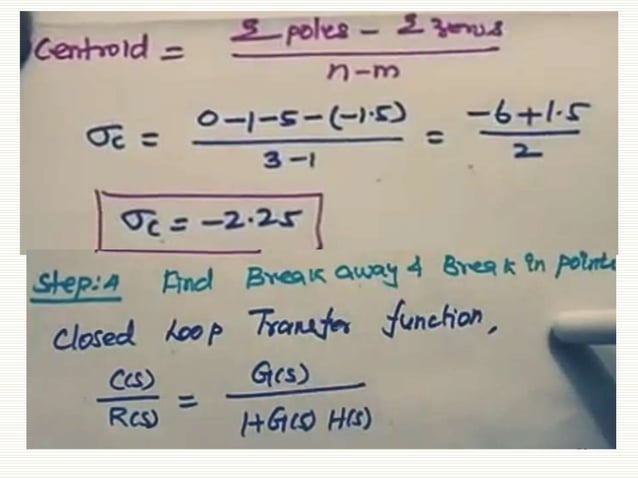 Centroid = Σ poles - Σ zeros / n-m
σc = 0-1-5-(-1.5) / 3-1 = -6+1.5 / 2
σc = -2.25
Step:4 Find Break away & Break in points
Closed Loop Transfer function,
C(s) / R(s) = G(s) / 1+G(s) H(s)